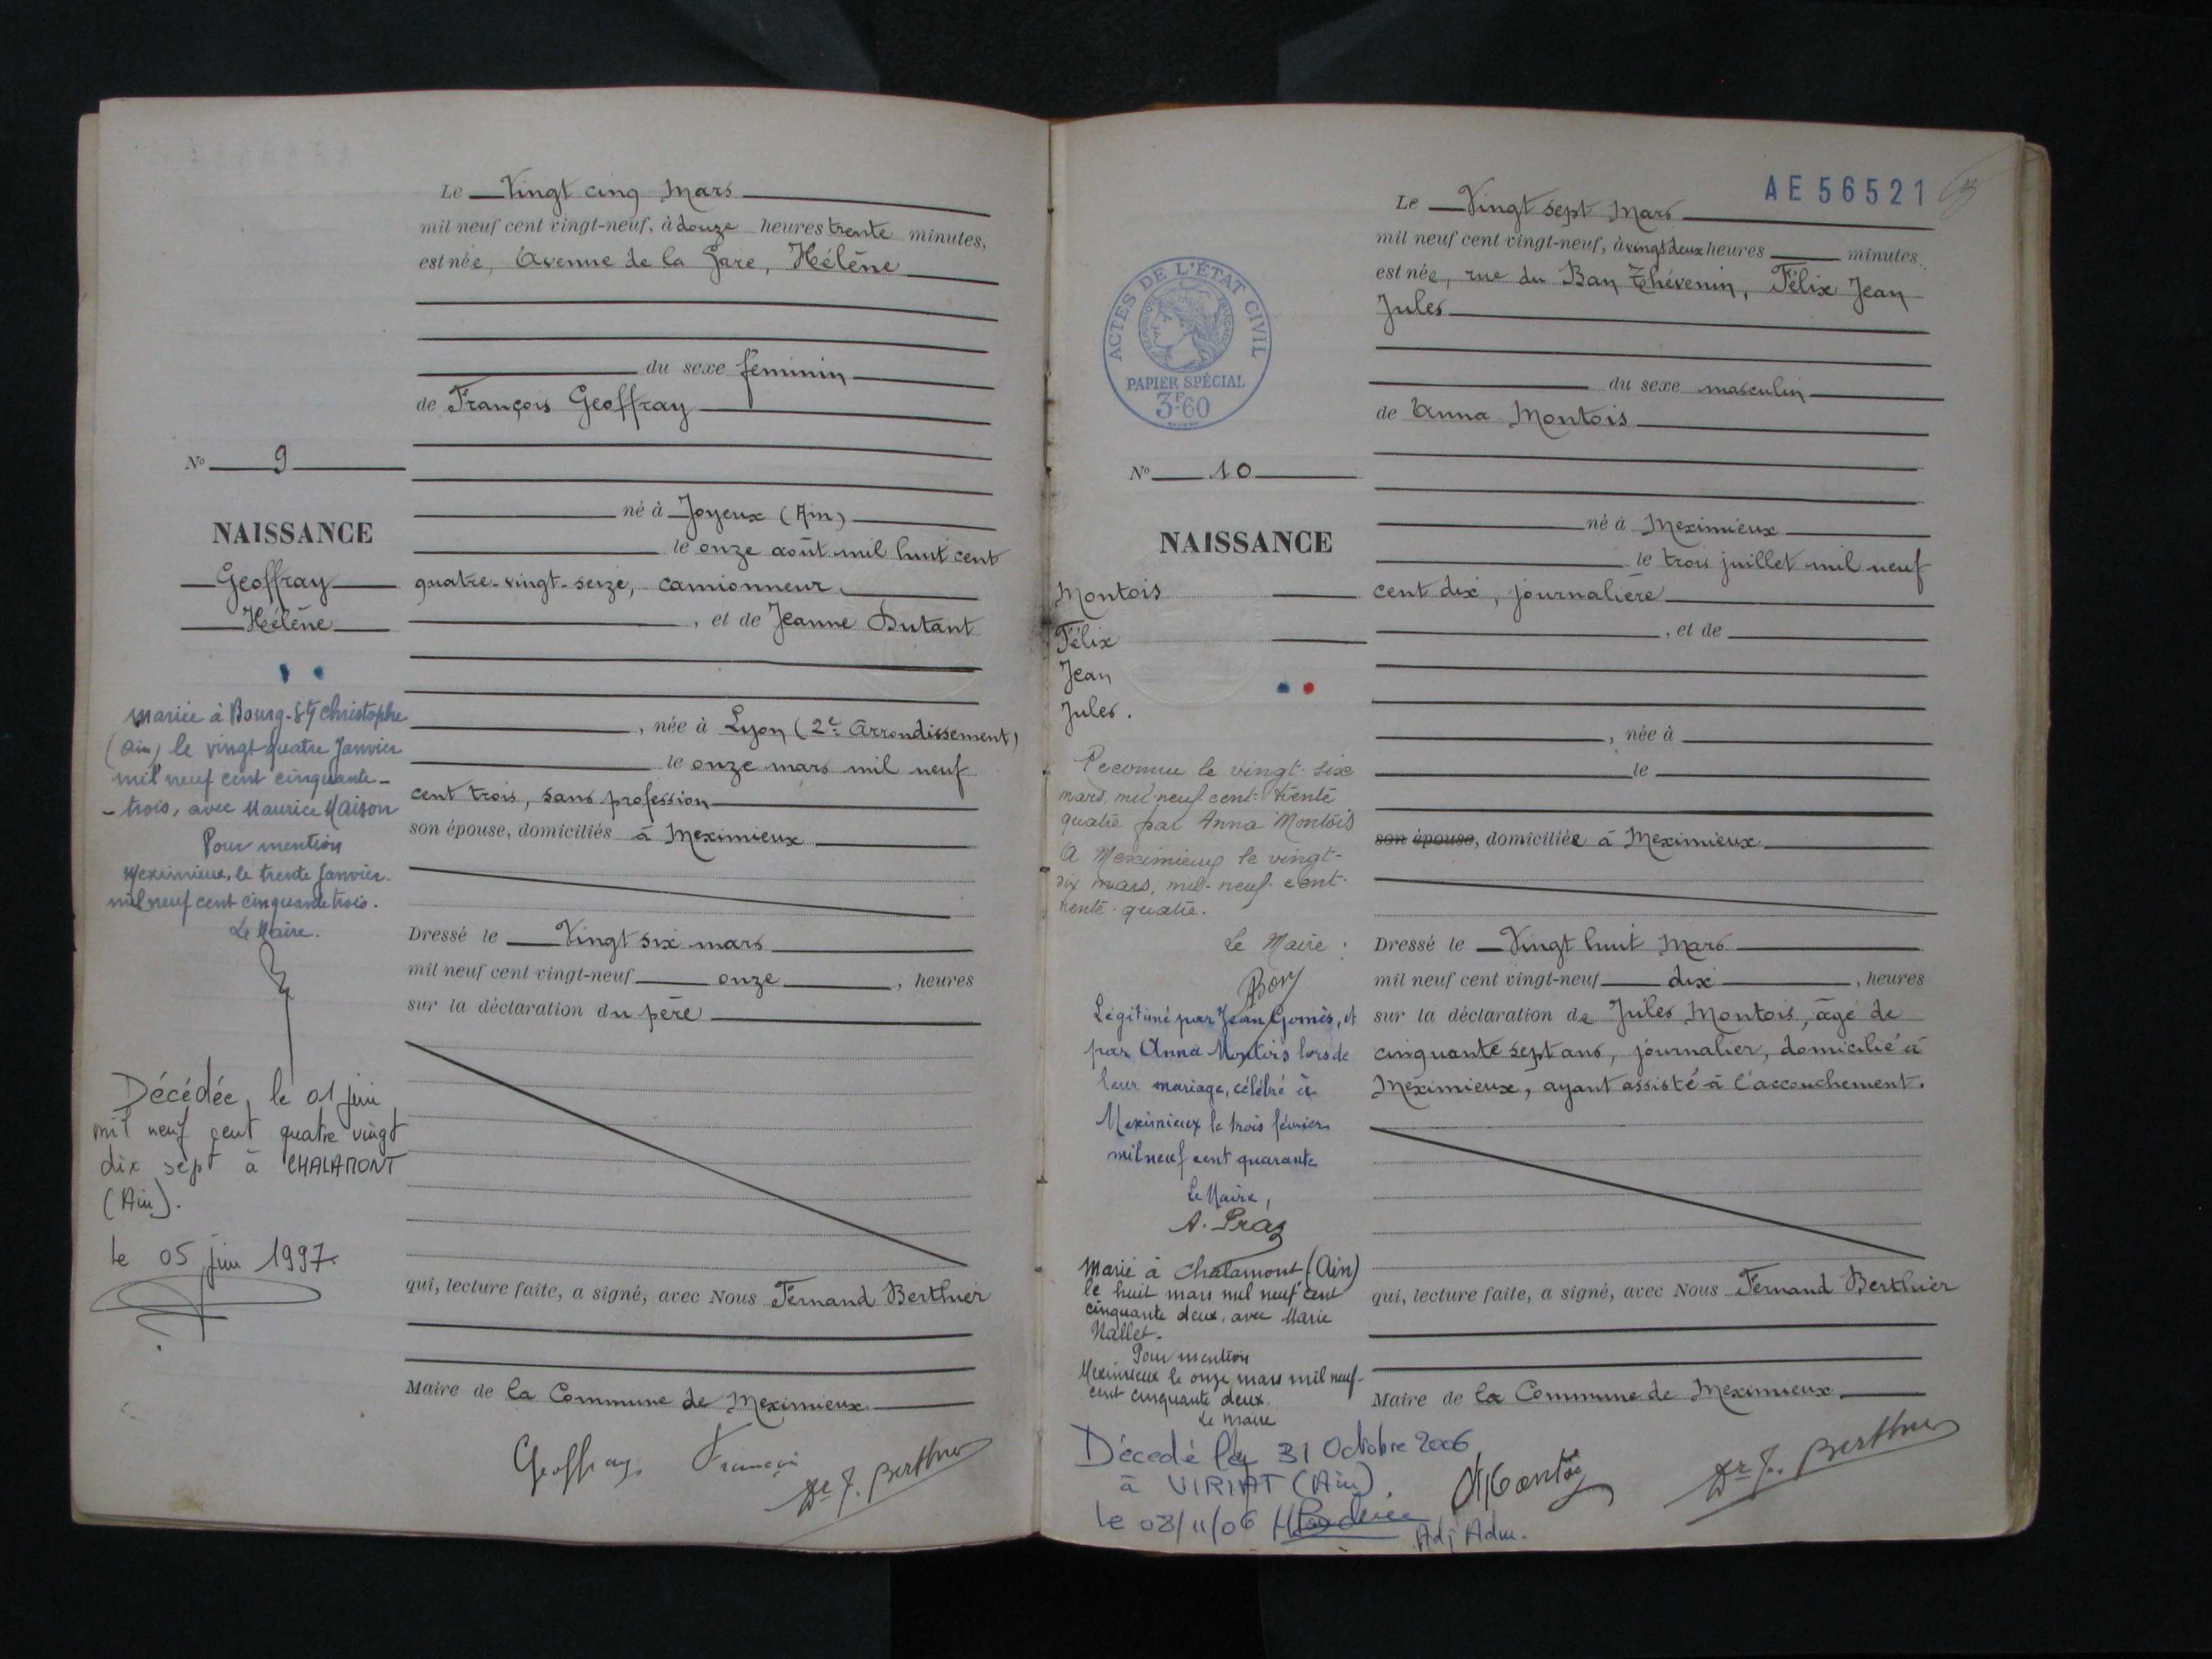 Le Vingt cinq Mars
mil neuf cent vingt-neuf, à douze heures trente minutes,
est née, Avenue de la Gare, Hélène
du sexe féminin
de François Geoffray
né à Joyeux (Ain)
le onze août mil huit cent
quatre-vingt-seize, camionneur
, et de Jeanne Dutant
, née à Lyon (2e Arrondissement)
le onze mars mil neuf
cent trois, sans profession
son épouse, domiciliés à Meximieux
Dressé le Vingt six mars
mil neuf cent vingt-neuf onze, heures
sur la déclaration du père
qui, lecture faite, a signé, avec Nous Fernand Berthier
Maire de la Commune de Meximieux.
Geoffray François
Dr F. Berthier
No 9
NAISSANCE
Geoffray
Hélène
Mariée à Bourg-St Christophe
(Ain) le vingt quatre Janvier
mil neuf cent cinquante-
-trois, avec Maurice Maison
Pour mention
Meximieux, le trente Janvier
mil neuf cent cinquante trois.
Le Maire.
Décédée, le 01 juin
mil neuf cent quatre vingt
dix sept à CHALAMONT
(Ain).
le 05 juin 1997.
AE56521
Le Vingt sept Mars
mil neuf cent vingt-neuf, à vingt deux heures minutes
est née, rue du Ban Thévenin, Félix Jean
Jules
du sexe masculin
de Anna Montois
né à Meximieux
le trois juillet mil neuf
cent dix, journalière
, et de
, née à
le
son épouse, domiciliée à Meximieux
Dressé le Vingt huit Mars
mil neuf cent vingt-neuf dix, heures
sur la déclaration de Jules Montois, âgé de
cinquante sept ans, journalier, domicilié à
Meximieux, ayant assisté à l'accouchement.
qui, lecture faite, a signé, avec Nous Fernand Berthier
Maire de la Commune de Meximieux.
Dr F. Berthier
ACTES DE L'ÉTAT CIVIL
RÉPUBLIQUE FRANÇAISE
PAPIER SPÉCIAL
3F60
No 10
NAISSANCE
Montois
Félix
Jean
Jules.
Reconnu le vingt-six
mars, mil-neuf-cent-trente
quatre par Anna Montois
A Meximieux le vingt-
six mars, mil-neuf-cent-
trente-quatre.
Le Maire :
Légitimé par Jean Gomès, et
par Anna Montois lors de
leur mariage, célébré à
Meximieux le trois février
mil neuf cent quarante
Le Maire,
Marié à Chalamont (Ain)
le huit mars mil neuf cent
cinquante deux, avec Marie
Nallet.
Pour mention
Meximieux le onze mars mil neuf-
cent cinquante deux.
Le Maire
Décédé le 31 Octobre 2006
à VIRIAT (Ain).
le 08/11/06
Adj Adm.